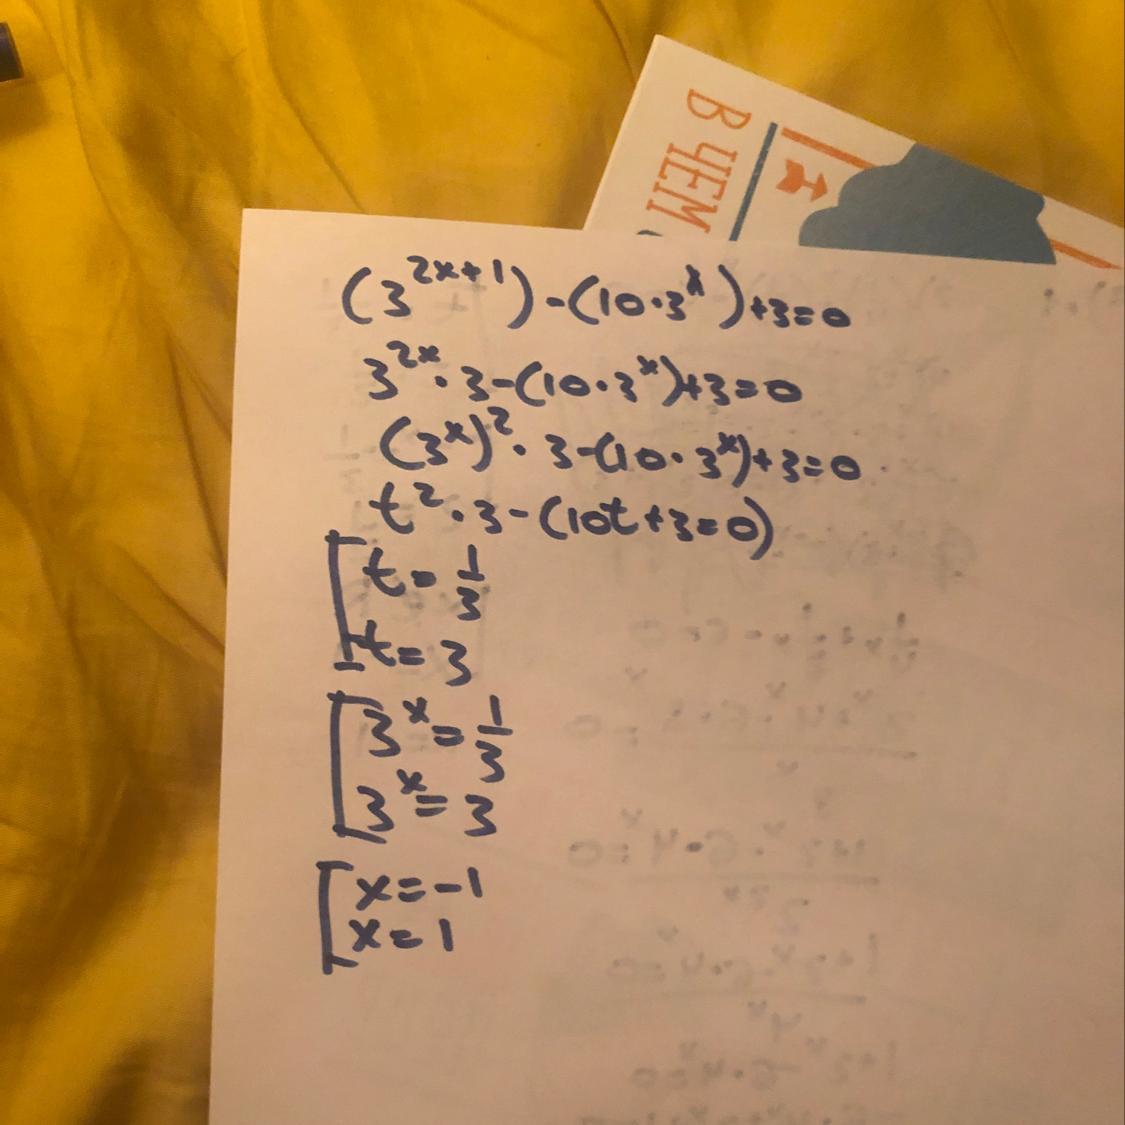 В ЧЕМ
(3^{2x+1})-(10·3^x)+3=0
3^{2x}·3-(10·3^x)+3=0
(3^x)^2·3-(10·3^x)+3=0
t^2·3-(10t+3=0)
t=1/3
t=3
3^x=1/3
3^x=3
x=-1
x=1